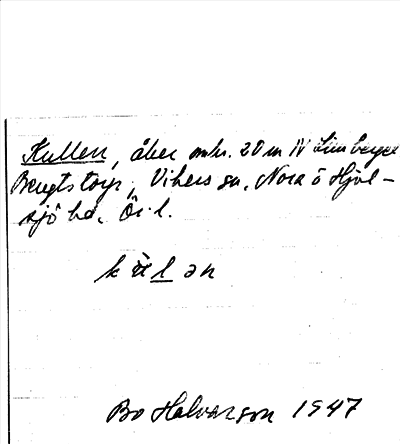 Kullen, åker omkr. 20 m N Limberget
Bengtstorp, Vikers sn, Nora o Hjul-
sjö hd, Ör. l.
Bo Halvarson 1947